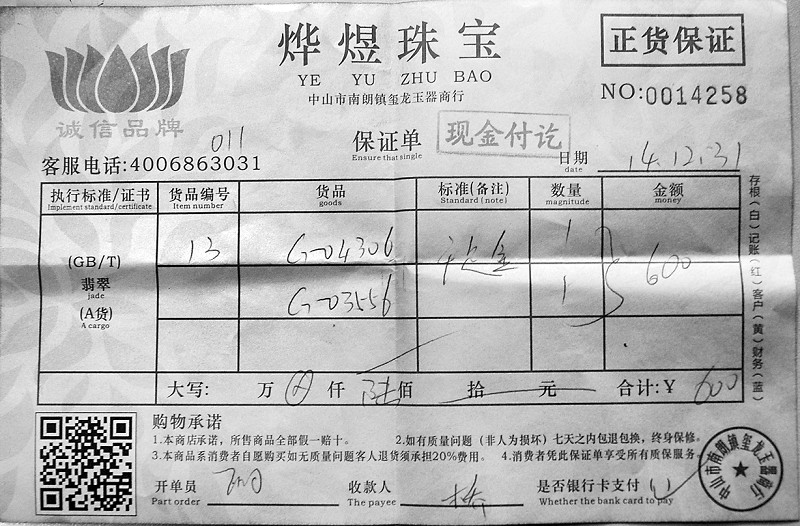 烨煜珠宝
YE YU ZHU BAO
中山市南朗镇玺龙玉器商行
正货保证
NO:0014258
诚信品牌
011
客服电话:4006863031
保证单
Ensure that single
现金付讫
日期
date
14.12.31
执行标准/证书
Implement standard/certificate
货品编号
Item number
货品
goods
标准(备注)
Standard(note)
数量
magnitude
金额
money
(GB/T)
翡翠
jade
(A货)
A cargo
13
G-04306
1
G-03556
1
600
大写: 万 仟 陆佰 拾 元 合计:¥ 600
存根(白)记账(红)客户(黄)财务(蓝)
购物承诺
1.本商店承诺，所售商品全部假一赔十。 2.如有质量问题（非人为损坏）七天之内包退包换，终身保修。
3.本商品系消费者自愿购买如无质量问题客人退货须承担20%费用。 4.消费者凭此保证单享受所有质保服务。
开单员
Part order
收款人
The payee
是否银行卡支付
Whether the bank card to pay
中山市南朗镇玺龙玉器商行